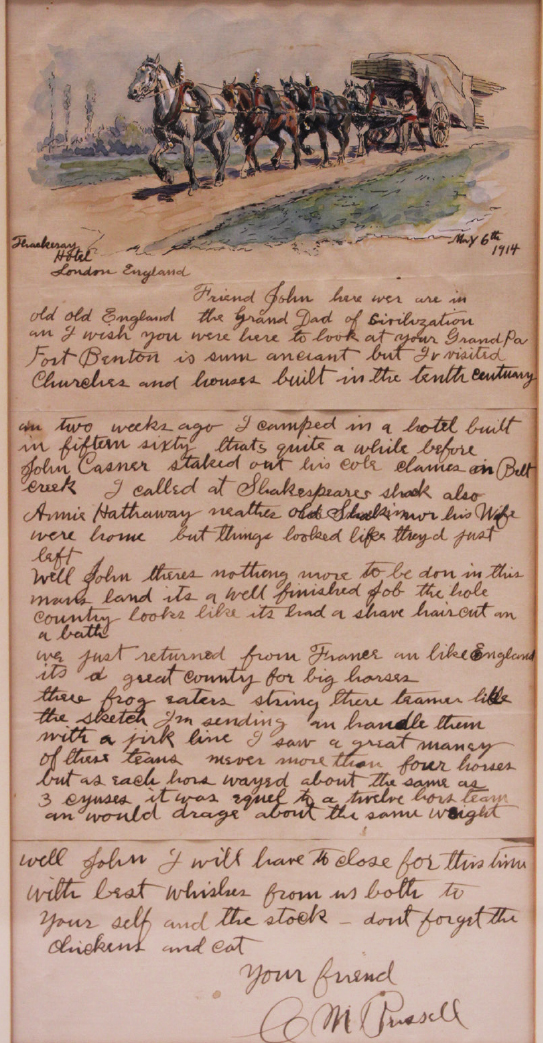 Thackeray
Hotel
London England
May 6th
1914
Friend John here wer are in
old old England the Grand Dad of Sivilization
an I wish you were here to look at your Grand Pa
Fort Benton is sum anciant but Iv visited
Churches and houses built in the tenth centuary
an two weeks ago I camped in a hotel built
in fiftern sixty thats quite a while before
John Casner staked out his cole claimes on Belt
creek I called at Shakespeares shack also
Annie Hathaway neather old Shakimor his Wife
were home but things looked like theyd just
left
Well John theres notheng more to be don in this
mans land its a well finished Job the hole
country looks like its had a shave haircut an
a bath
wer just returned from France an like England
its a great country for big horses
these frog eaters string there teames like
the sketch I'm sending an handle them
with a jirk line I saw a great maney
of these teams never more than four horses
but as each hors wayed about the same as
3 cyuses it was equel to a twelve hors team
an would drage about the same weight
well John I will have to close for this time
with best whishes from us both to
Your self and the stock – dont forget the
chickens and cat
Your friend
C M Russell